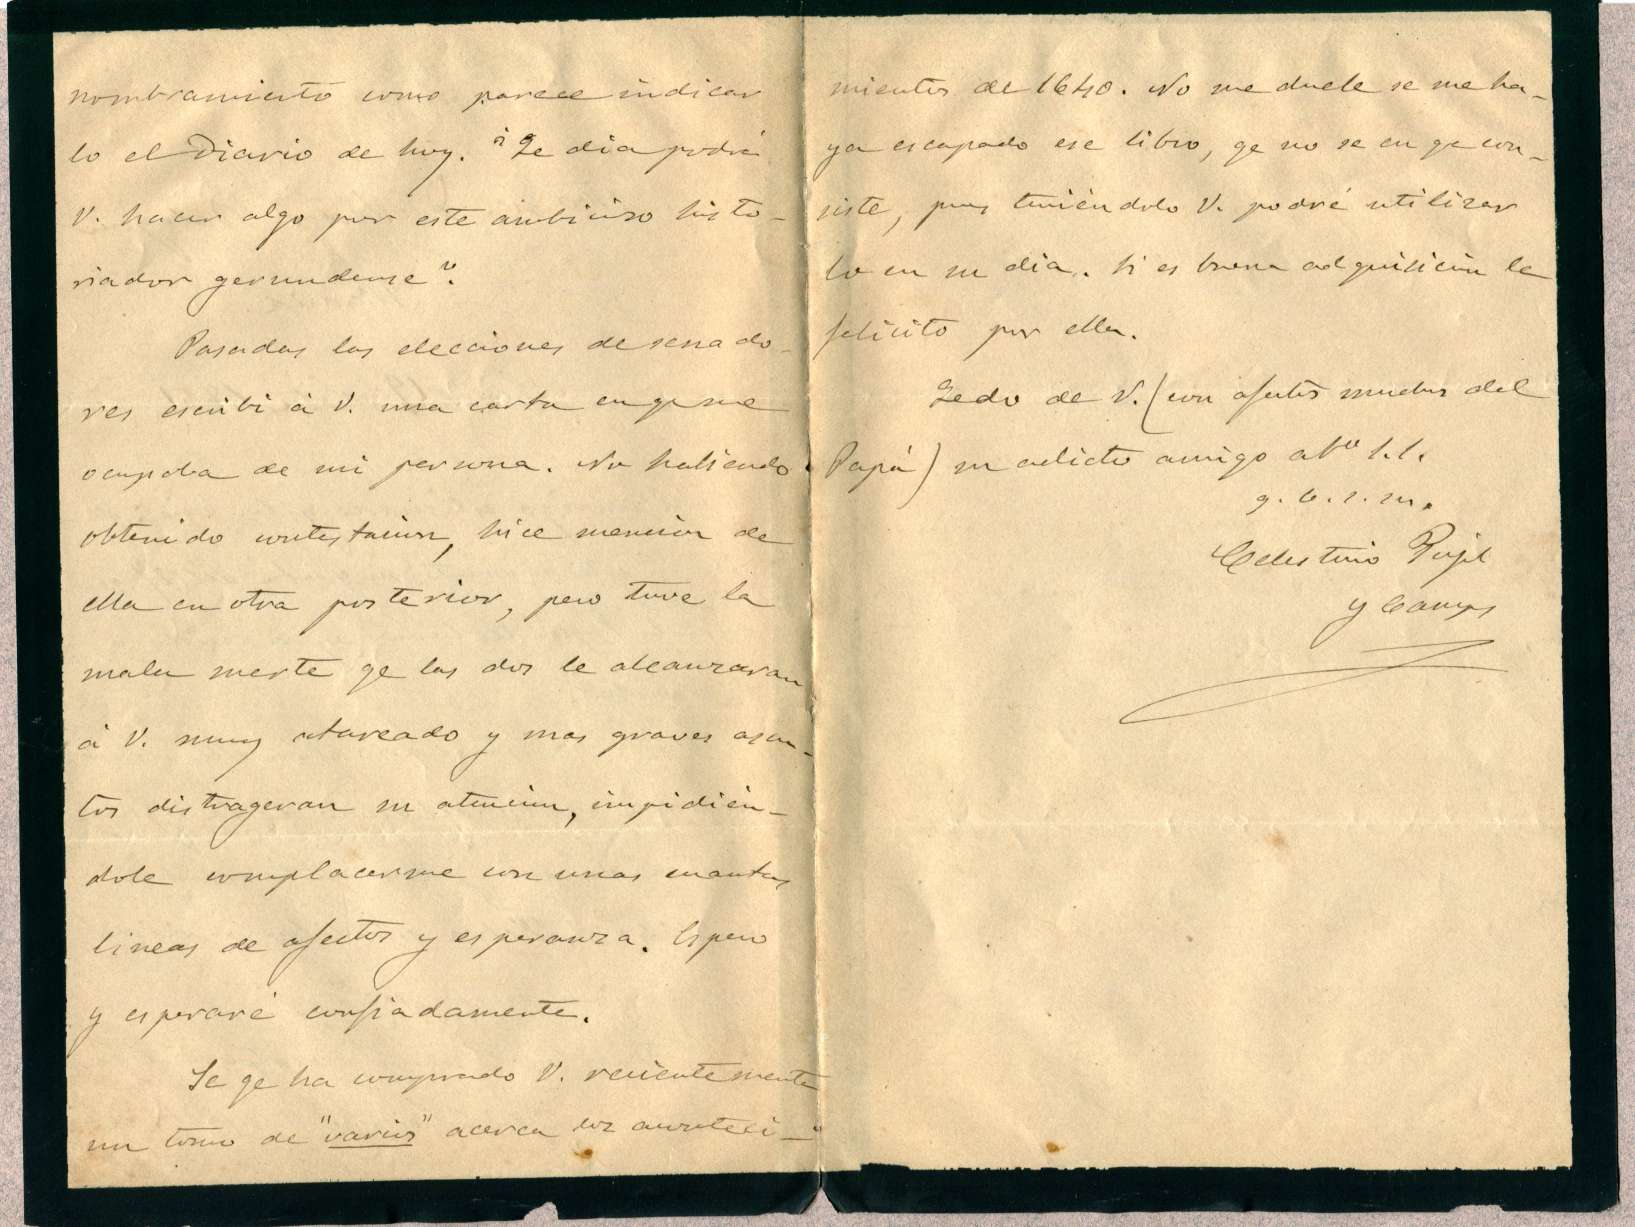 nombramiento como parece indicar
lo el Diario de hoy. ¿Qe dia podrá
V. hacer algo por este ambicioso histo-
riador gerundense?
Pasadas las elecciones de senado-
res escribí á V. una carta en qe me
ocupaba de mi persona. No habiendo
obtenido contestacion, hice mencion de
ella en otra posterior, pero tuve la
mala suerte qe las dos le alcanzaran
á V. muy atareado y mas graves asun-
tos distrageran su atencion, impidién-
dole complacerme con unas cuantas
lineas de afectos y esperanza. Espero
y esperaré confiadamente.
Se qe ha comprado V. recientemente
un tomo de "varios" acerca los aconteci-
mientos de 1640. No me duele se me ha-
ya escapado ese libro, qe no se en qe con-
siste, pues teniéndolo V. podré utilizar
lo en su dia. Si es buena adquisicion le
felicito por ella.
Qedo de V. (con afectos muchos del
Papá) su adicto amigo atto s.s.
q. b. s. m.
Celestino Pujol
y Camps